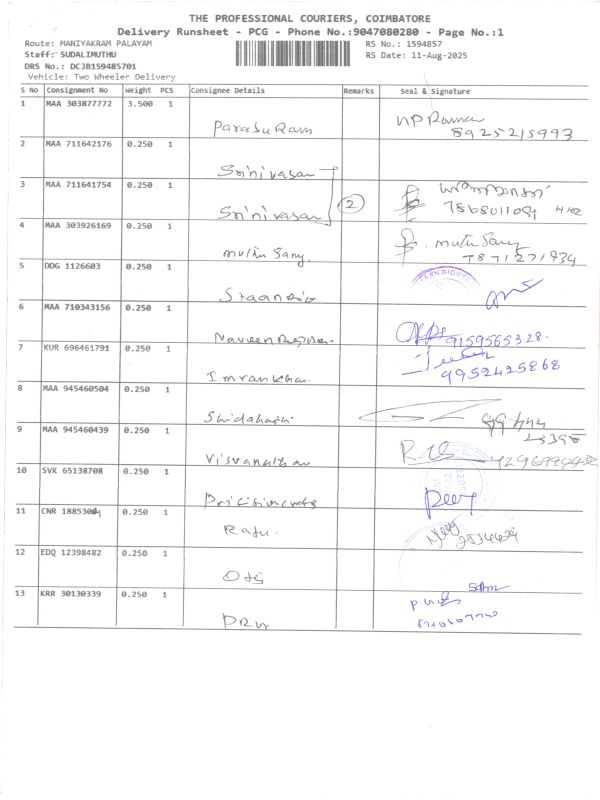 THE PROFESSIONAL COURIERS, COIMBATORE
Delivery Runsheet - PCG - Phone No.:9047080280 - Page No.:1
Route: MANIYAKRAM PALAYAM
RS No.: 1594857
Staff: SUDALIMUTHU
RS Date: 11-Aug-2025
DRS No.: DCJB159485701
Vehicle: Two Wheeler Delivery
S No Consignment No Weight PCS Consignee Details Remarks Seal & Signature
1 MAA 303877772 3.500 1
ParasuRam
NP Raman
8925215993
2 MAA 711642176 0.250 1
Srinivasan
3 MAA 711641754 0.250 1
Srinivasan
2
4 MAA 303926169 0.250 1
muthu Samy.
muthu Samy
7871271934
5 DDG 1126603 0.250 1
6 MAA 710343156 0.250 1
Naveen
9159565328.
7 KUR 696461791 0.250 1
Imrankhan.
9952425868
8 MAA 945460504 0.250 1
9 MAA 945460439 0.250 1
Visvanathan
10 SVK 65138708 0.250 1
11 CNR 1885304 0.250 1
Raju.
12 EDQ 12398482 0.250 1
Otis
13 KRR 30130339 0.250 1
PRU